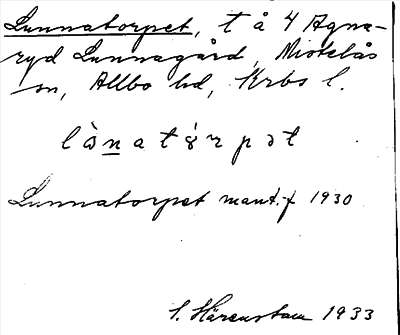 Lunnatorpet, t å 4 Agna-
ryd Lunnagård, Mistelås
sn, Allbo hd, Krbs l.
lònatórpət
Lunnatorpet mant.f 1930
S. Härenstam 1933